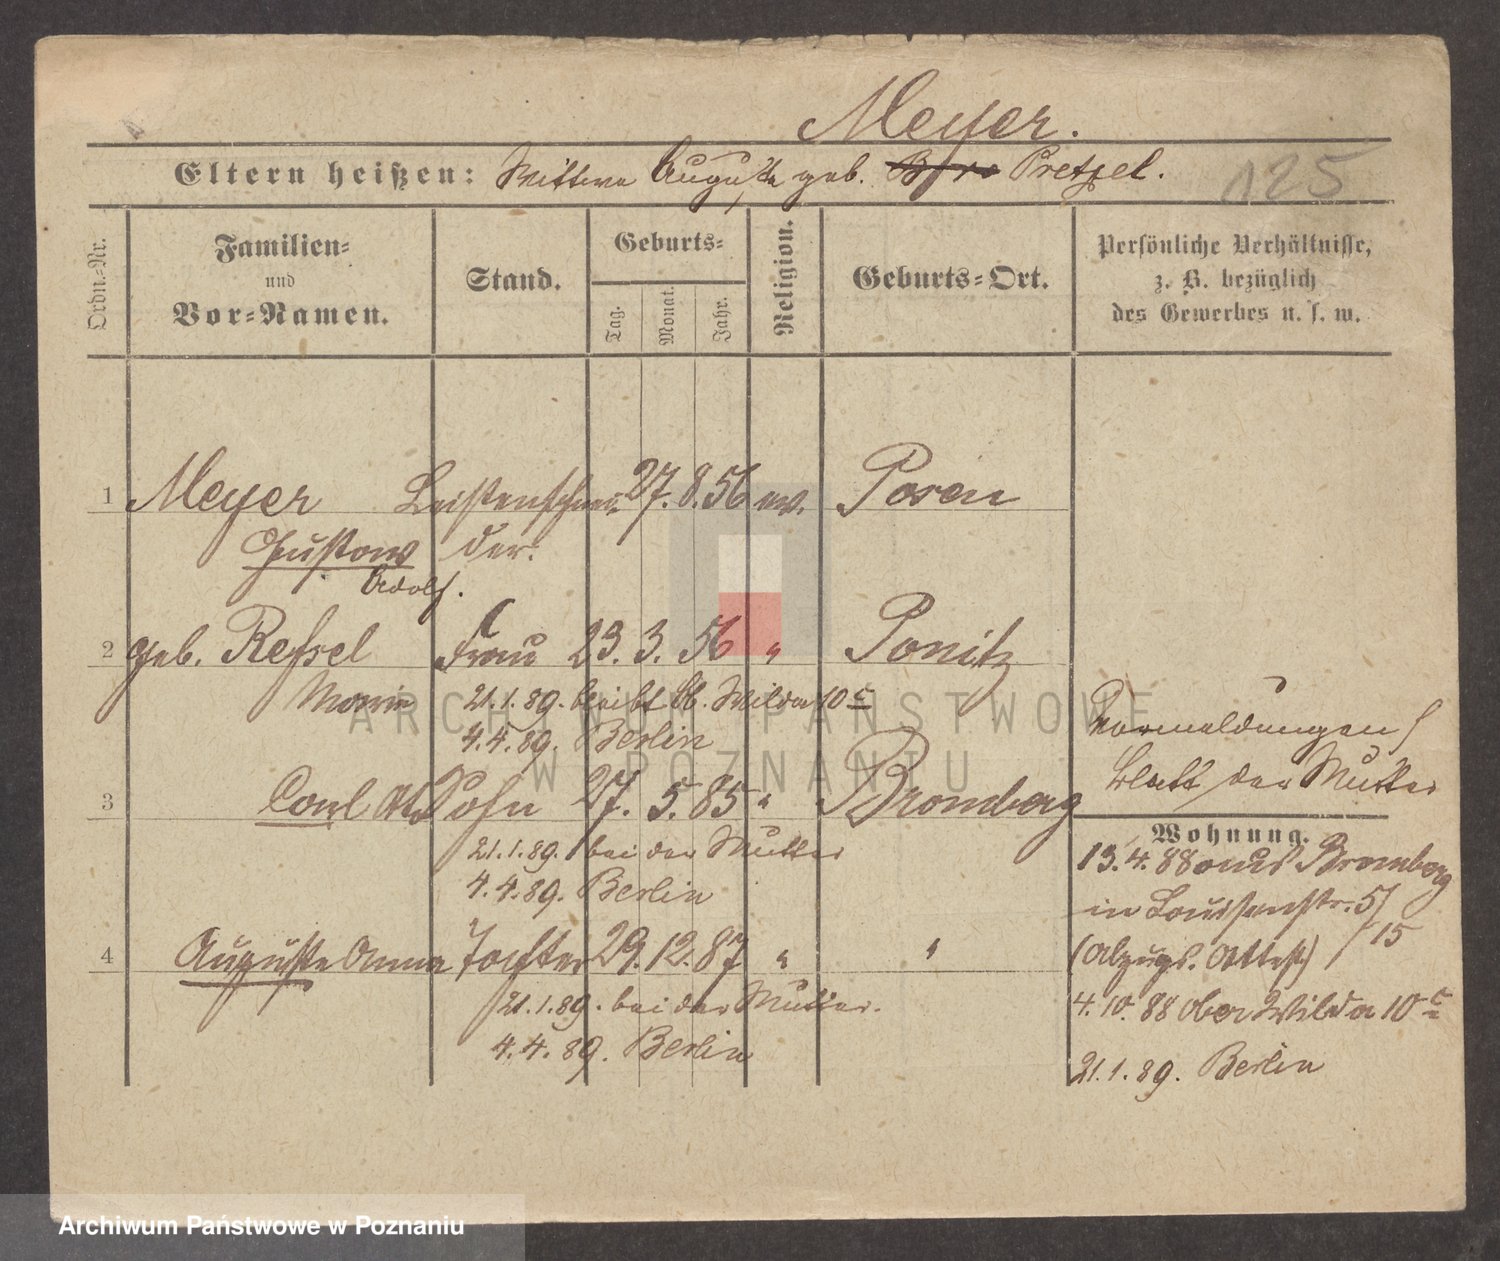 Meyer.
Eltern heißen: Wittwe Auguste geb. Pretzel.
125
Ordn.-Nr.
Familien-
und
Vor-Namen.
Stand.
Geburts-
Tag.
Monat.
Jahr.
Religion.
Geburts-Ort.
Persönliche Verhältnisse,
z. B. bezüglich
des Gewerbes u. s. w.
1 Meyer Leistenschnei- 27. 8. 56 ev. Posen
Gustav der.
Adolf.
2 geb. Refsel Frau 23. 3. 56 " Ponitz
Marie 21.1.89. bleibt Ob. Wilda 10 c
4.4.89. Berlin
3 Carl Otto Sohn 27. 5. 85 " Bromberg
21.1.89. bei der Mutter
4.4.89. Berlin
4 Auguste Anna Tochter 29. 12. 87 " "
21.1.89. bei der Mutter.
4.4.89. Berlin
Vormeldungen
Blatt der Mutter
Wohnung.
13.4.88 aus Bromberg
in Louisenstr. 5/
15
(Abzugs. Attest)
4.10.88 Ober Wilda 10 c
21.1.89. Berlin
ARCHIWUM PAŃSTWOWE
W POZNANIU
Archiwum Państwowe w Poznaniu